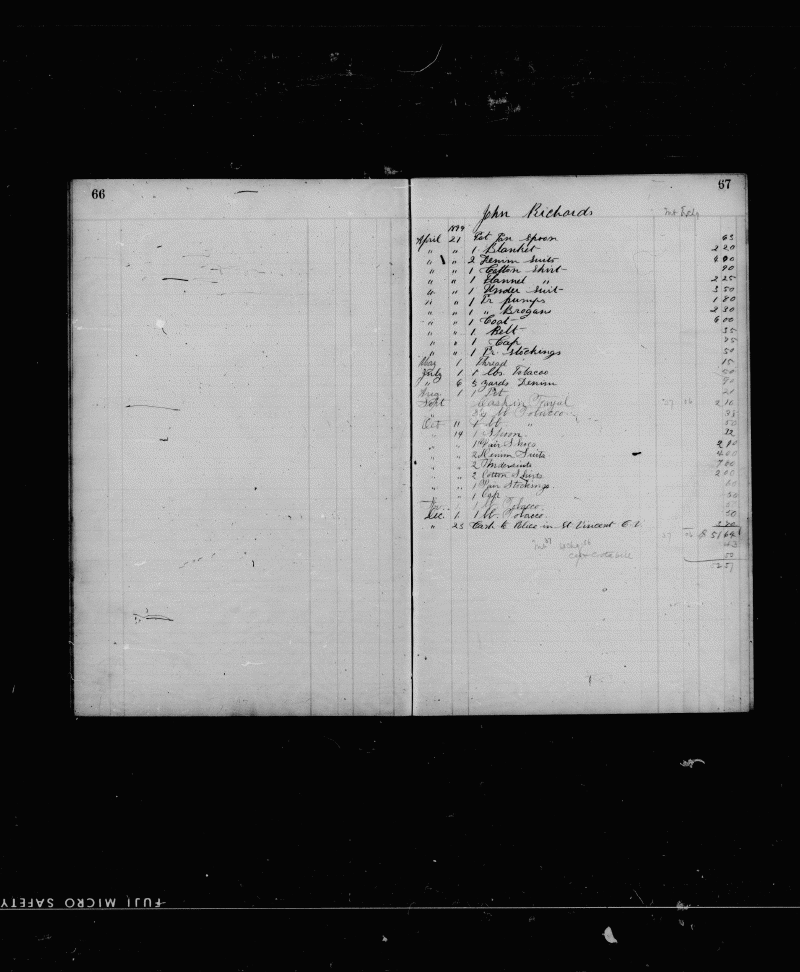 66
67
John Richards
April 21 Pot Pan Spoon 63
" " 1 Blanket 2 20
" " 2 Denim Suits 4 00
" " 1 Cotton Shirt 90
" " 1 Flannel " 2 25
" " 1 Under Suit 3 50
" " 1 Pr pumps 1 80
" " 1 " Brogans 2 30
" " 1 Coat 6 00
" " 1 Belt 35
" " 1 Cap 75
" " 1 Pr stockings 50
May 1 Thread 15
July 1 1 lbs Tobacco 50
" 6 5 yards Denim 90
Aug 1 1 Pot
Sept Cash in Fayal 2 10
" lb Tobacco
Oct 11 1 lb " 50
" 14 1 Spoon
" " 1 Pair Shoes
" " 2 Denim Suits 4 00
" " 2 Undersuits 7 00
" " 2 Cotton Shirts 2 00
" " 1 Pair Stockings
" " 1 Cap 50
Nov 1 1 lb Tobacco
Dec 1 1 lb Tobacco 50
" 23 Cash to Police in St Vincent C.V.
$ 51 64
FUJI MICRO SAFETY